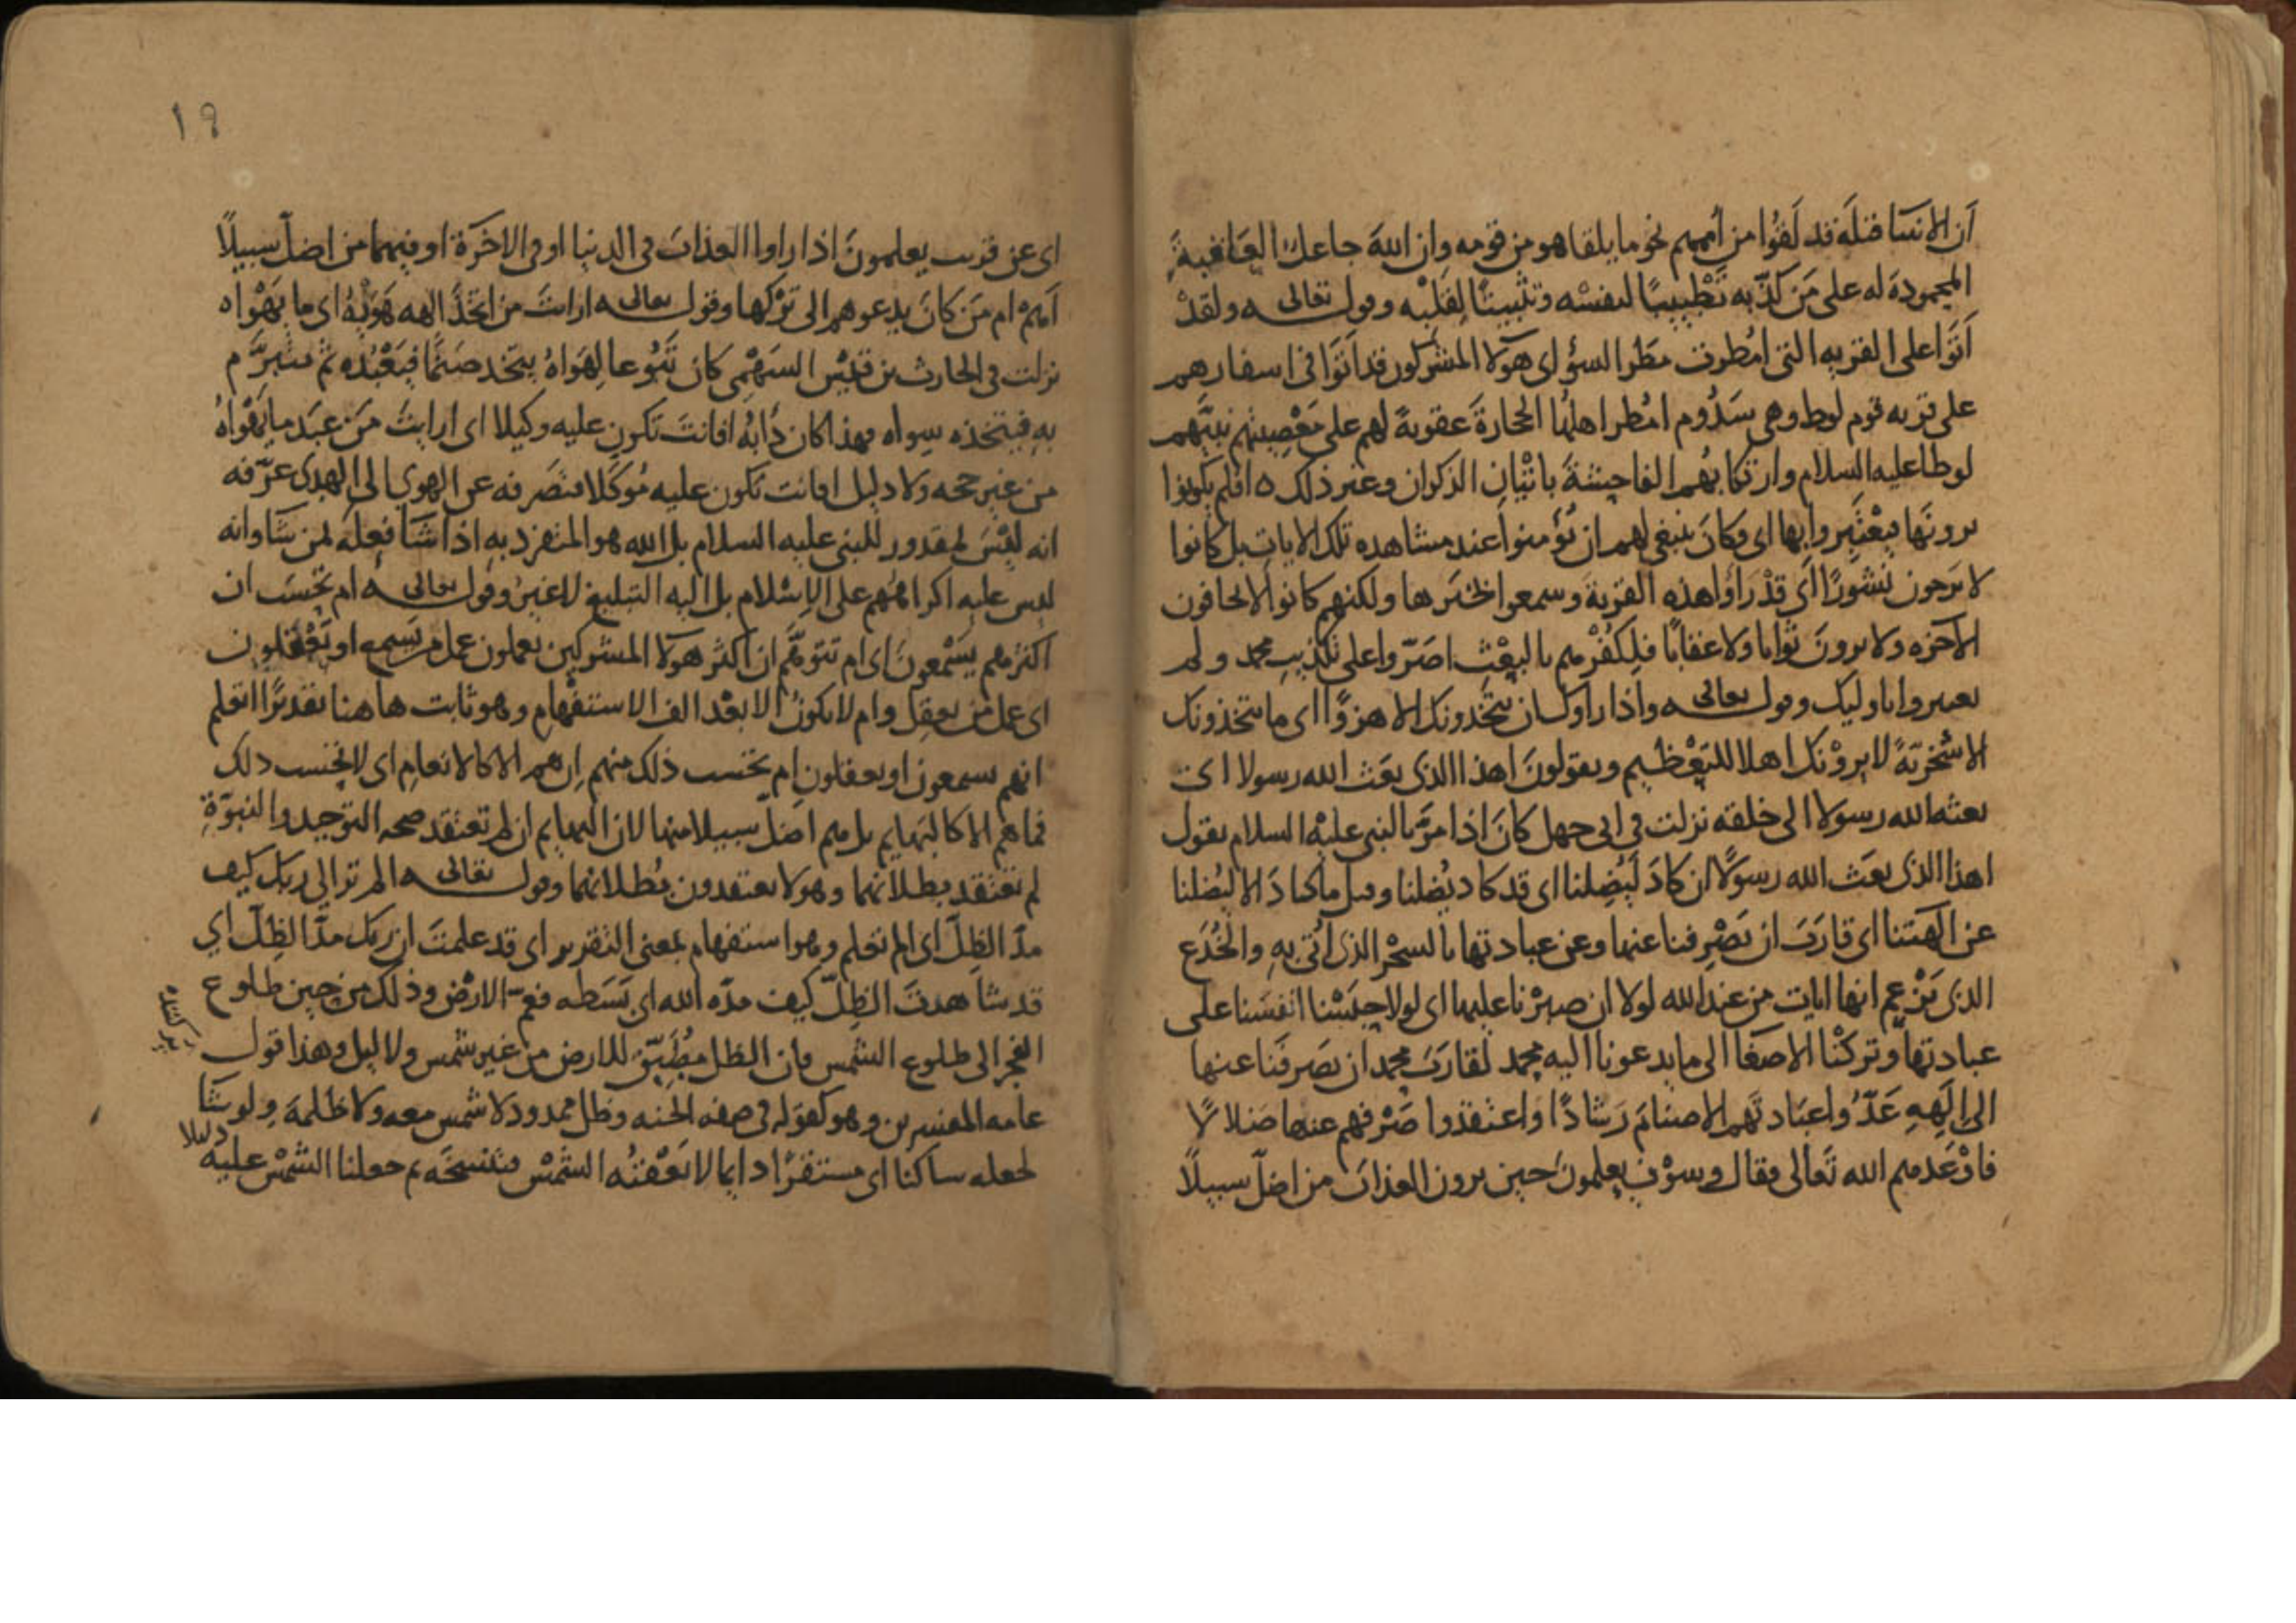 أن الأنبيا قبله قد لقوا من أممهم نحو ما يلقا هو من قومه وان الله جاعل العاقبة
المحمودة له على من كذّبه تطييبا لنفسه وتثبيتا لقلبه وقوله تعالى ه ولقد
أتوا على القرية التي امطرت مطر السوء اي هولا المشركون قد اتوا في اسفارهم
على قرية قوم لوط وهي سدوم امطر اهلها الحجارة عقوبة لهم على معصيتهم نبيهم
لوطا عليه السلام وارتكابهم الفاحشة باتيان الذكران وغير ذلك ه افلم يكونوا
يرونها فيعتبروا بها اي وكان ينبغي لهم ان يؤمنوا عند مشاهدة تلك الايات بل كانوا
لا يرجون نشورا اي قد راوا هذه القرية وسمعوا خبرها ولكنهم كانوا لا يخافون
الآخره ولا يرون ثوابا ولا عقابا فلكفرهم بالبعث اصرّوا على تكذيب محمد ولم
يعتبروا باوليك وقوله تعالى ه واذا راوك ان يتخذونك الا هزوًا اي ما يتخذونك
الا سخرية لا يرونك اهلا للتعظيم ويقولون اهذا الذي بعث الله رسولا اي
بعثه الله رسولا الى خلقه نزلت في ابي جهل كان اذا مرّ بالنبي عليه السلام يقول
اهذا الذي بعث الله رسولًا ان كاد ليضلنا اي قد كاد يضلنا وقيل ما كاد الا يضلنا
عن الهتنا اي قارب ان يصرفنا عنها وعن عبادتها بالسحر الذي أتى به والخدع
الذي يزعم انها ايات من عند الله لولا ان صبرنا عليها اي لولا حبسنا انفسنا على
عبادتها وتركنا الاصغا الى ما يدعونا اليه محمد لقارب محمد ان يصرفنا عنها
الى إلهه عدّوا عبادتهم الاصنام رشادًا واعتقدوا صرفهم عنها ضلالًا
فاوعدهم الله تعالى فقال وسوف يعلمون حين يرون العذاب من اضلّ سبيلًا
١٩
اي عن قريب يعلمون اذا راوا العذاب في الدنيا او في الاخرة او فيهما من اضلّ سبيلًا
أهم ام من كان يدعوهم الى تركها وقوله تعالى ه ارايت من اتخذ الهه هويه اي ما يهواه
نزلت في الحارث بن قيس السهمي كان تبوعا لهواه يتخذ صنما فيعبده ثم يتبرّم
به فيتخذه سواه فهذا كان دأبه افانت تكون عليه وكيلا اي ارايت من عبد ما يهواه
من غير حجه ولا دليل افانت تكون عليه موكلا فتصرفه عن الهوى الى الهدى عرّفه
انه ليس بمقدور للنبي عليه السلام بل الله هو المتفرد به اذا شا فعله لمن شا وانه
ليس عليه اكراههم على الاسلام بل اليه التبليغ لا غير وقوله تعالى ه ام تحسب ان
اكثرهم يسمعون اي ام تتوهّم ان اكثر هولا المشركين يعملون عمل من يسمع او يعقلون
اي عمل من يعقل وام لا يكون الا بعد الف الاستفهام وهو ثابت هاهنا تقديرًا اتعلم
انهم يسمعون او يعقلون ام تحسب ذلك منهم ان هم الا كالانعام اي لا تحسب ذلك
فما هم الا كالبهايم بل هم اضلّ سبيلا منها لان البهايم ان لم تعتقد صحه التوحيد والنبوّة
لم تعتقد بطلانهما وهولا يعتقدون بطلانهما وقوله تعالى ه الم تر الى ربك كيف
مدّ الظلّ اي الم تعلم وهو استفهام بمعنى التقرير اي قد علمت ان ربك مدّ الظلّ اي
قد شاهدت الظلّ كيف مدّه الله اي بسطه فعمّ الارض وذلك من حين طلوع
الفجر الى طلوع الشمس فان الظل مطبّق للارض من غير شمس ولا ليل وهذا قول
عامه المفسرين وهو كقوله في صفه الجنه وظل ممدود لا شمس معه ولا ظلمة ولو شا
لجعله ساكنا اي مستقرًا دايما لا تعقبه الشمس فتنسخه ثم جعلنا الشمس عليه
دليلا